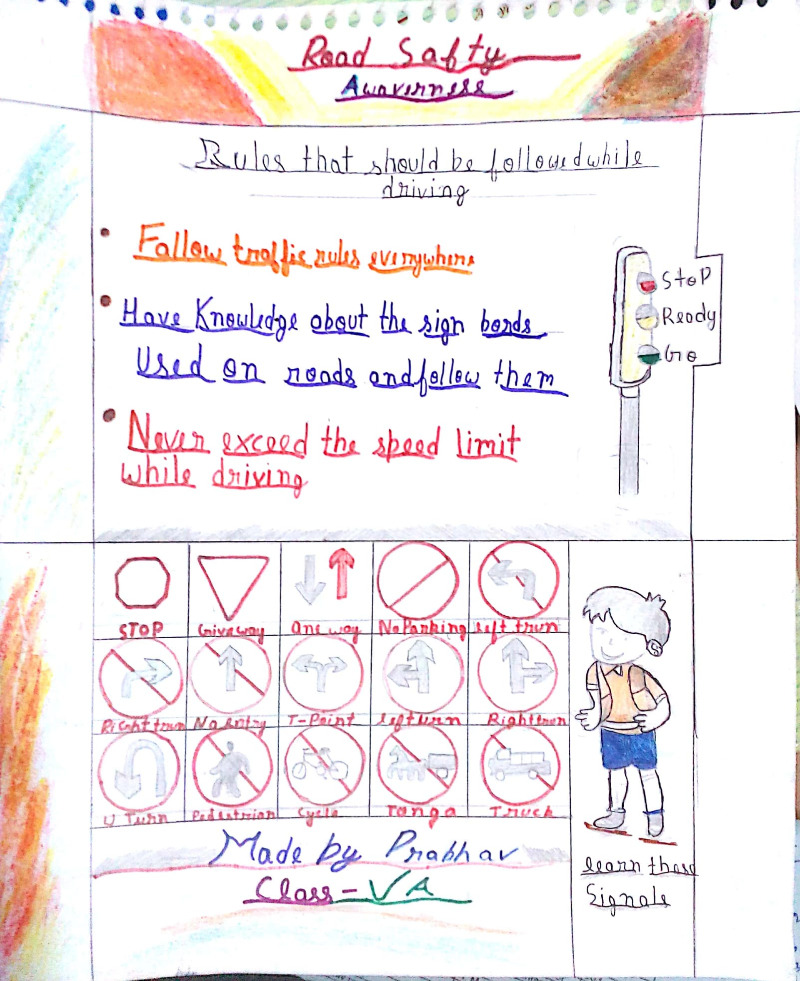 Road Safty
Awaverness
Rules that should be followed while
driving
Follow traffic rules everywhere
Have Knowledge about the sign bords
Used on roads and follow them
Never exceed the speed limit
while driving
StoP
Ready
Go
STOP
Giveaway
One way
No Parking
left trun
Right trun
No entry
T-Point
left urn
Right trun
U Turn
Pedestrian
Cycle
Tanga
Truck
learn these
Signals
Made by Prabhav
Class - V A